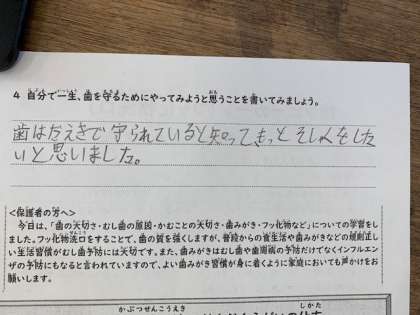 4 自分で一生、歯を守るためにやってみようと思うことを書いてみましょう。
歯はだえきで守られていると知ってもっとそしゃくをした
いと思いました。
<保護者の方へ>
今日は、「歯の大切さ・むし歯の原因・かむことの大切さ・歯みがき・フッ化物など」についての学習をし
ました。フッ化物洗口をすることで、歯の質を強くしますが、普段からの食生活や歯みがきなどの規則正し
い生活習慣がむし歯予防には大切です。また、歯みがきはむし歯や歯周病の予防だけでなくインフルエン
ザの予防にもなると言われていますので、よい歯みがき習慣が身に着くように家庭においても声かけをお
願いします。
かぶつせんこうえき
しかた